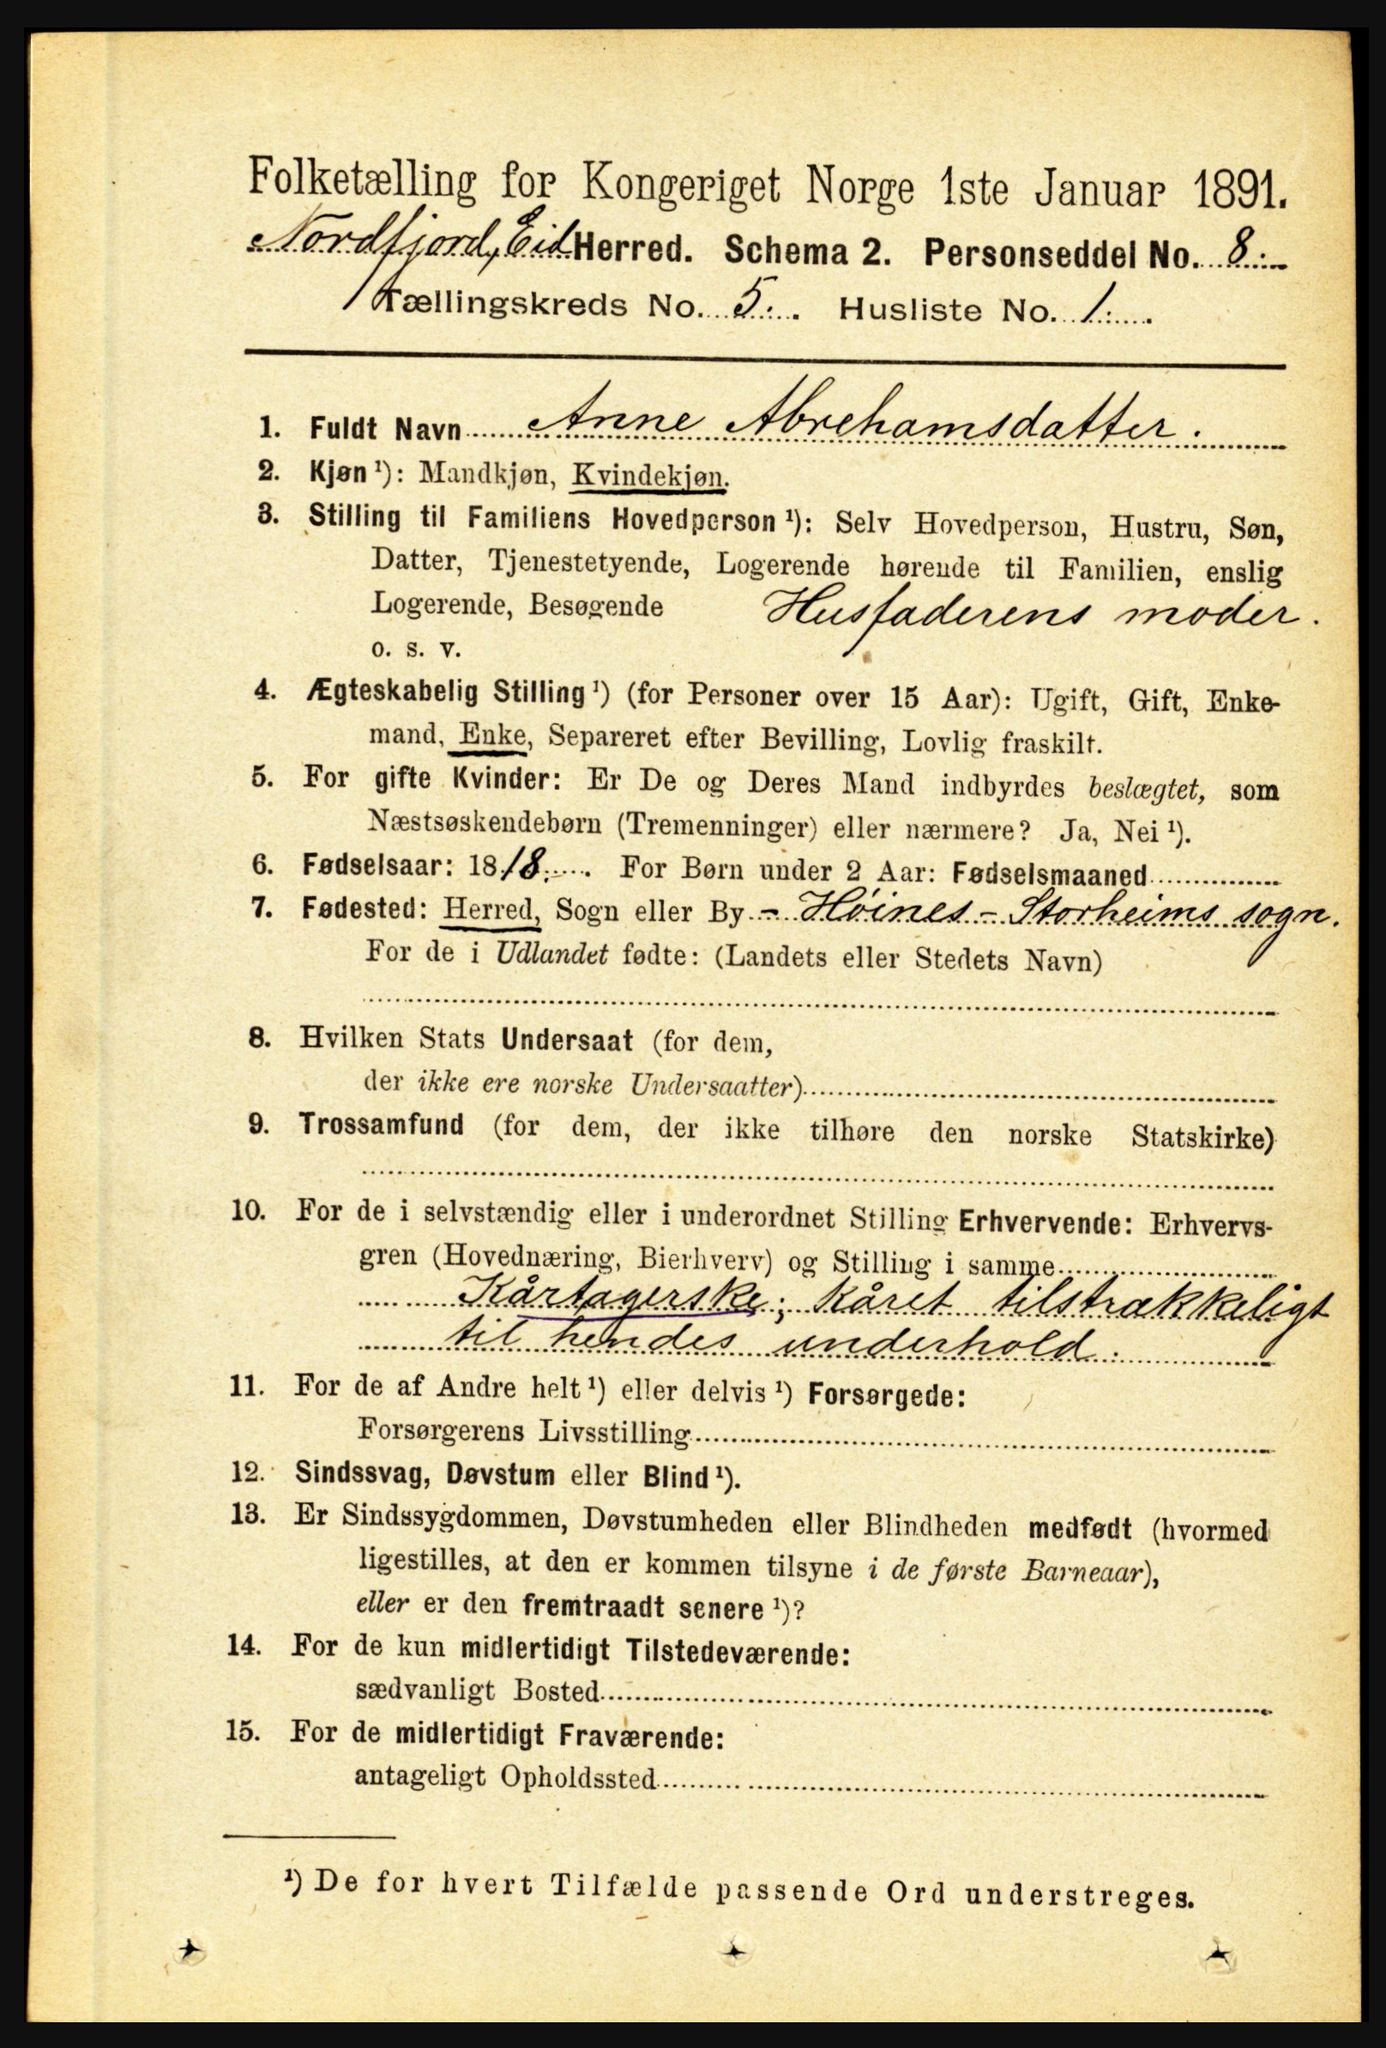 Folketælling for Kongeriget Norge 1ste Januar 1891.
Nordfjord, Eid Herred. Schema 2. Personseddel No. 8.
Tællingskreds No. 5. Husliste No. 1.
1. Fuldt Navn Anne Abrehamsdatter.
2. Kjøn ¹): Mandkjøn, Kvindekjøn.
3. Stilling til Familiens Hovedperson ¹): Selv Hovedperson, Hustru, Søn,
Datter, Tjenestetyende, Logerende hørende til Familien, enslig
Logerende, Besøgende Husfaderens moder.
o. s. v.
4. Ægteskabelig Stilling ¹) (for Personer over 15 Aar): Ugift, Gift, Enke-
mand, Enke, Separeret efter Bevilling, Lovlig fraskilt.
5. For gifte Kvinder: Er De og Deres Mand indbyrdes beslægtet, som
Næstsøskendebørn (Tremenninger) eller nærmere? Ja, Nei ¹).
6. Fødselsaar: 1818. For Børn under 2 Aar: Fødselsmaaned
7. Fødested: Herred, Sogn eller By - Höines - Storheims sogn.
For de i Udlandet fødte: (Landets eller Stedets Navn)
8. Hvilken Stats Undersaat (for dem,
der ikke ere norske Undersaatter)
9. Trossamfund (for dem, der ikke tilhøre den norske Statskirke)
10. For de i selvstændig eller i underordnet Stilling Erhvervende: Erhvervs-
gren (Hovednæring, Bierhverv) og Stilling i samme
Kårtagerske; Kåret tilstrækkeligt
til hendes underhold.
11. For de af Andre helt ¹) eller delvis ¹) Forsørgede:
Forsørgerens Livsstilling
12. Sindssvag, Døvstum eller Blind ¹).
13. Er Sindssygdommen, Døvstumheden eller Blindheden medfødt (hvormed
ligestilles, at den er kommen tilsyne i de første Barneaar),
eller er den fremtraadt senere ¹)?
14. For de kun midlertidigt Tilstedeværende:
sædvanligt Bosted
15. For de midlertidigt Fraværende:
antageligt Opholdssted
¹) De for hvert Tilfælde passende Ord understreges.